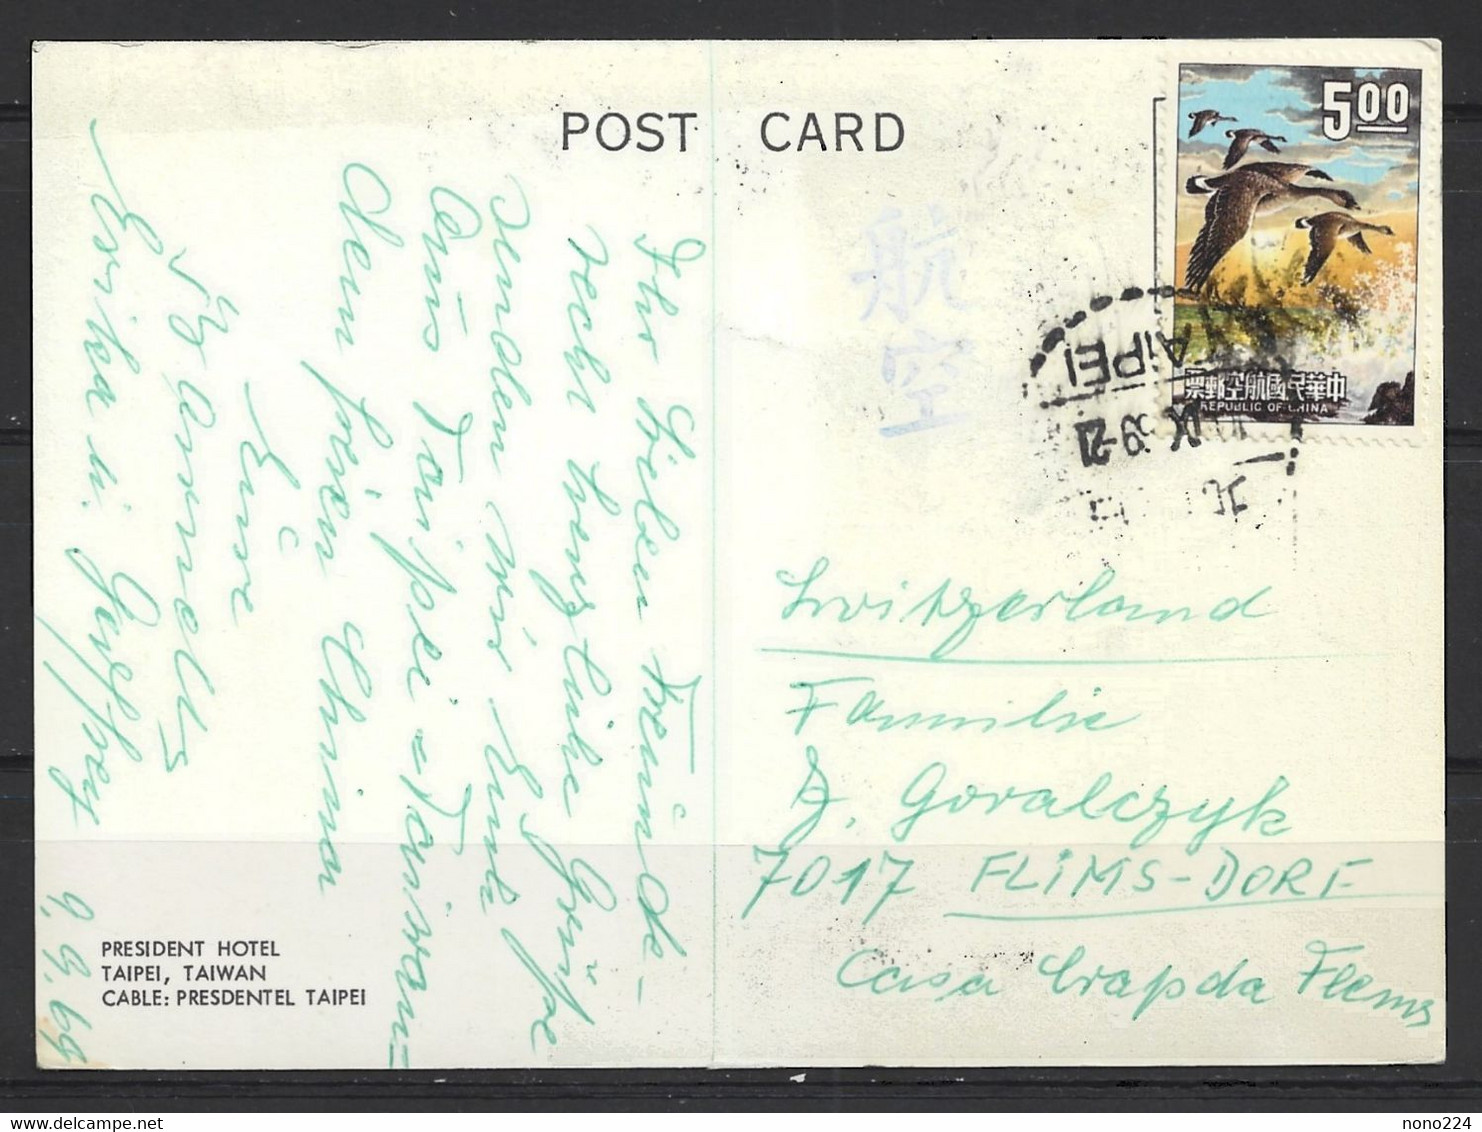 POST CARD
5.00
中華民國航空郵票
REPUBLIC OF CHINA
航空
TAiPEI
IX 69-21
北
Ihr Lieben Freunde
recht herzliche Grüsse
senden wir Euch
aus Taipei = Taiwan =
dem freien China
Eure
Erika u.
9.9.69
Switzerland
Familie
J. Goralczyk
7017 FLiMS-DORF
Casa Crapda Flems
PRESIDENT HOTEL
TAIPEI, TAIWAN
CABLE: PRESDENTEL TAIPEI
nono224